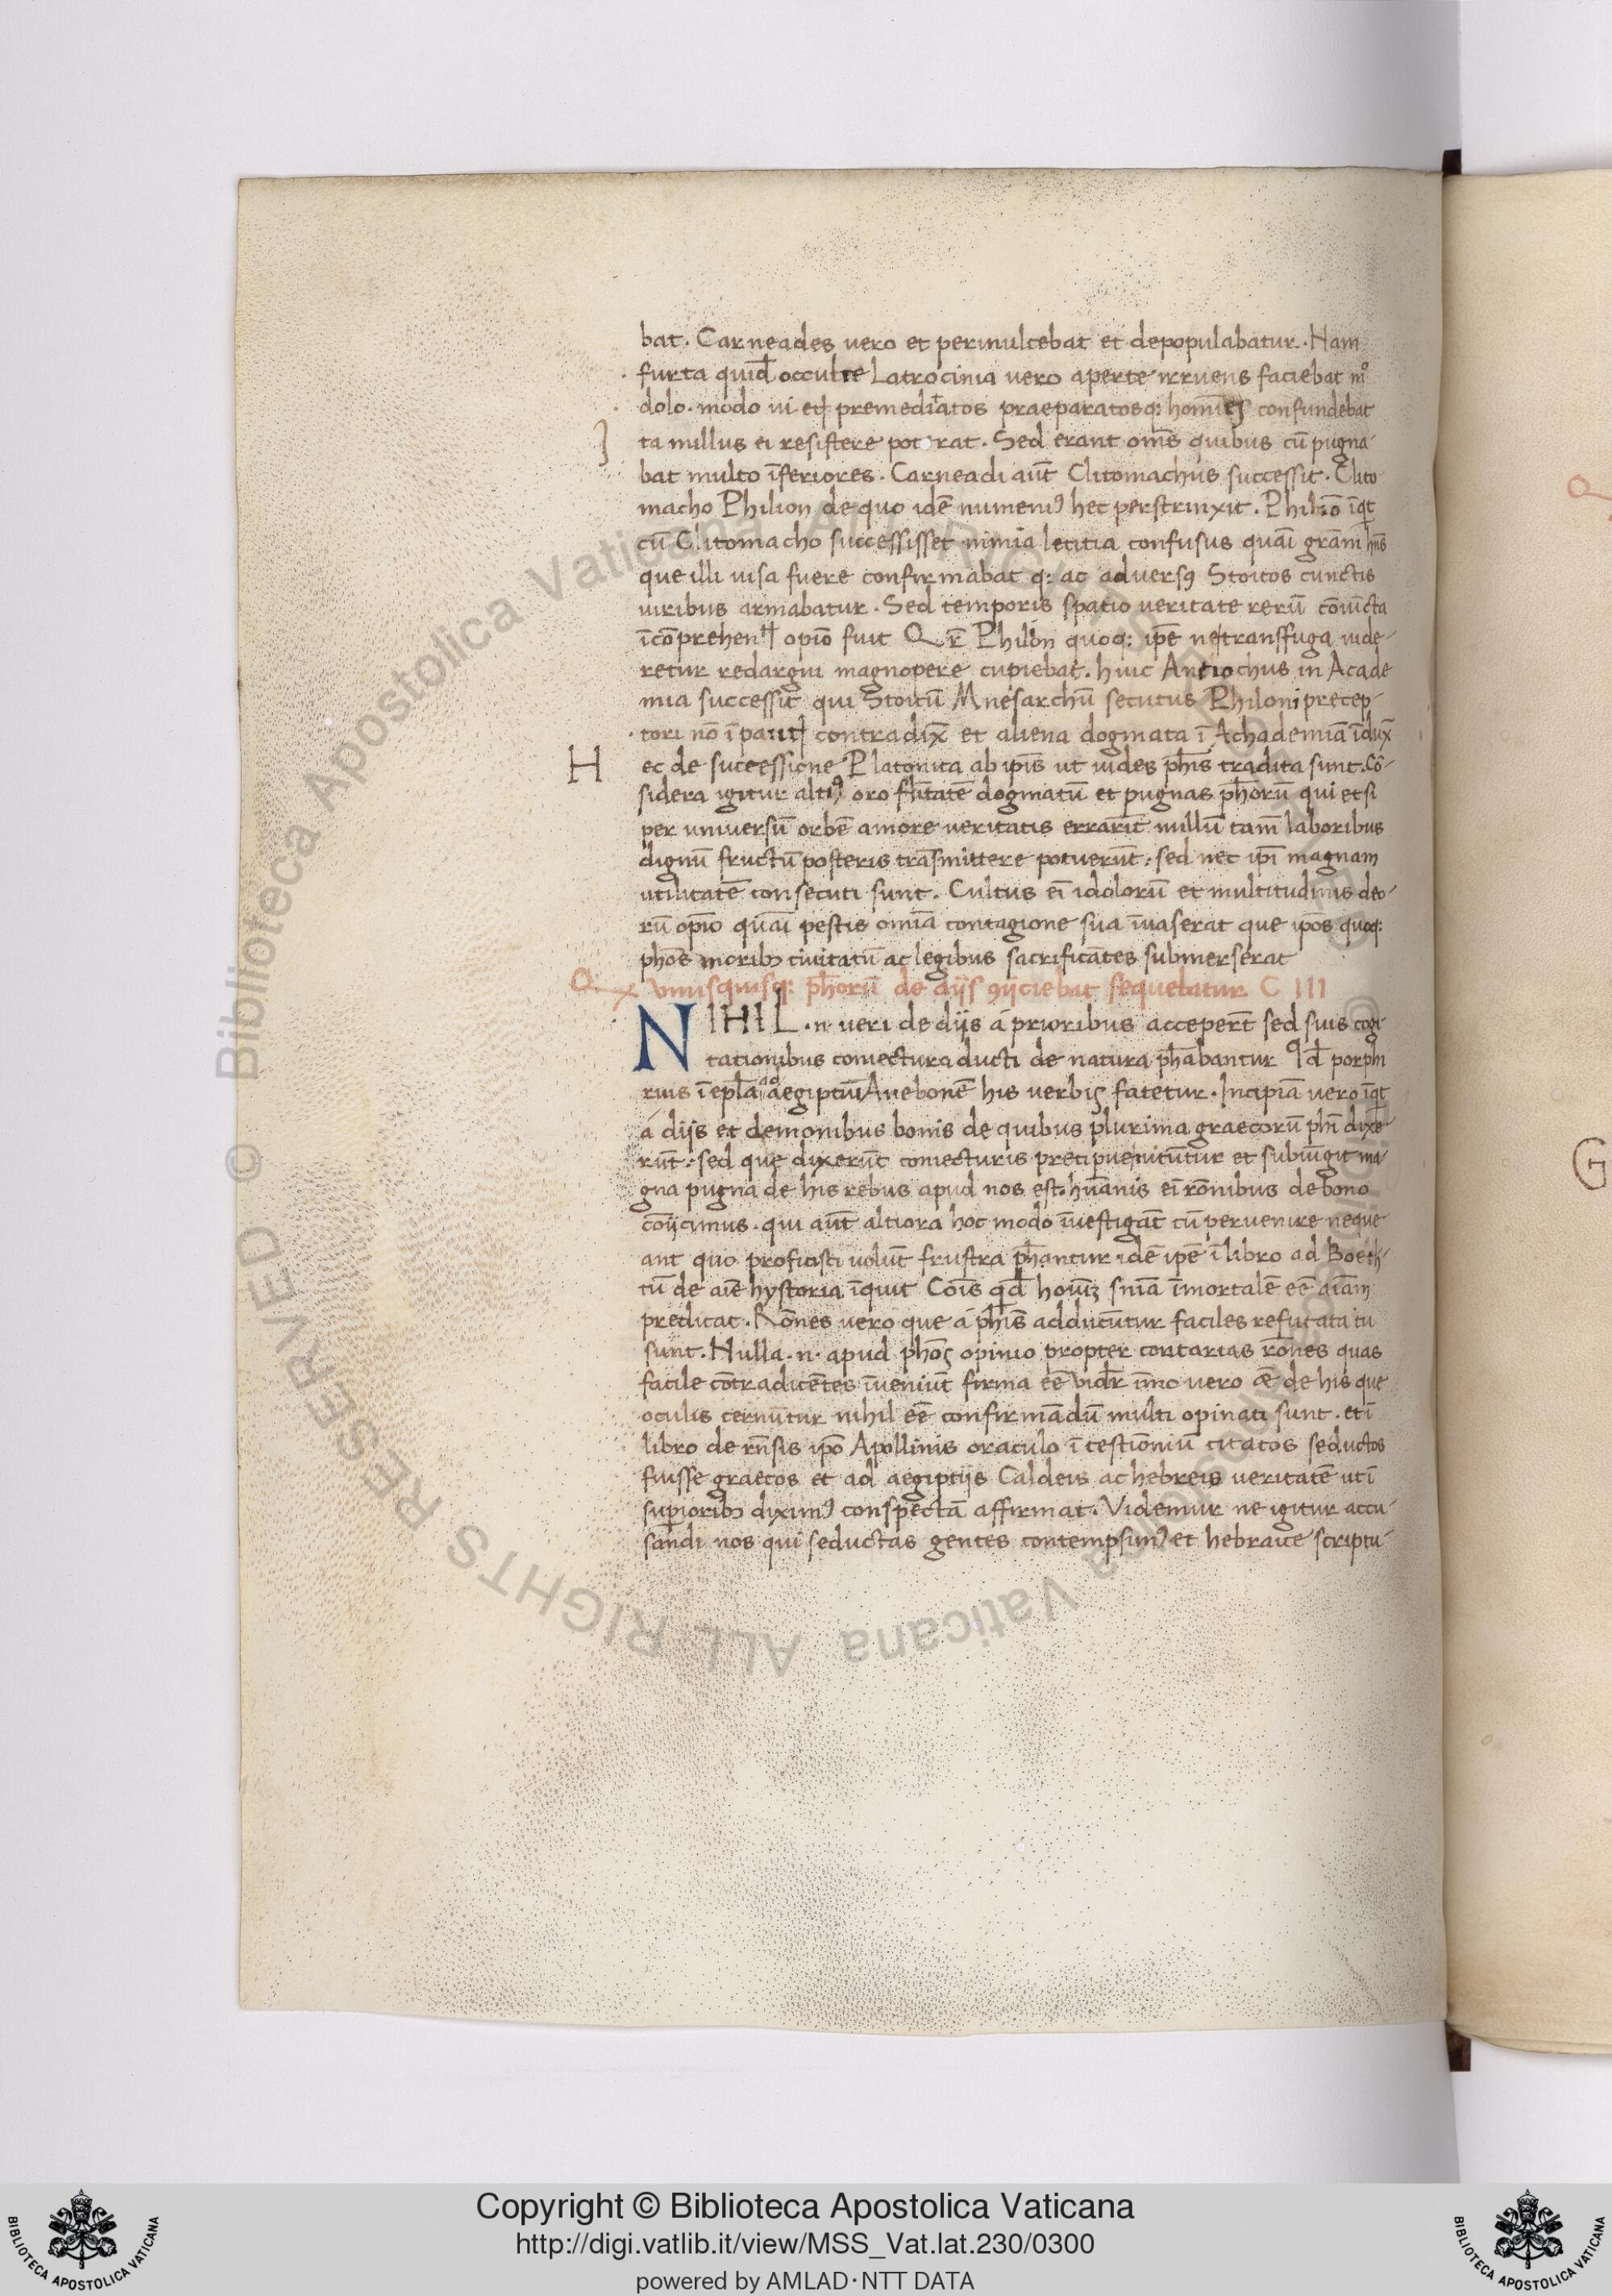 bat. Carneades uero et permultebat et depopulabatur. Nam
furta quid̄ occulte Latrocinia uero aperte irruens faciebat mº
dolo. modo ui et premeditatos praeparatosq: homies confundebat
I ta nullus ei resistere pot rat. Sed erant oms̄ quibus cū pugna-
bat multo īferiores. Carneadi aūt Clitomachus successit. Clito
macho Philion de quo idē numeniꝰ hec perstrinxit. Philiō īqt
cū Clitomacho successisset nimia letitia confusus quāi grām
que illi uisa fuere confirmabat q: ac aduersꝰ Stoicos cunctis
uiribus armabatur. Sed temporis spatio ueritate rerū cōuicta
opiō fuit Qr̄ Philon quoq: ipē ne transffuga uide-
retur redargui magnopere cupiebat. huic Antiochus in Acade
mia successit qui Stoicū Mnesarchū secutus Philoni precep-
tori nō ī contradix̄ et aliena dogmata ī Achademiā īdux̄
H ec de successione Platonica ab ipīs ut uides ph̄is tradita sunt. Cō-
sidera igitur altiꝰ oro dogmatū et pugnas ph̄orū qui etsi
per uniuersū orbē amore ueritatis errarīt nullū tam̄ laboribus
dignū fructū posteris trāsmittere potuerūt: sed nec ipī magnam
utilitatē consecuti sunt. Cultus eī idolorū et multitudinis deo-
rū opīo quāi pestis omīa contagione sua īuaserat que ipōs quoq:
phōs moribꝫ ciuitatū ac legibus sacrificātes submerserat
Qx unusquisq: ph̄orū de dijs ꝯijciebat sequebatur C III
NIHIL .n. ueri de dijs á prioribus acceper̄t sed suis cogi-
tationibus coniectura ducti de natura ph̄abantur qd̄ porphi
rius ī epl̄a ad aegiptiū Anebonē his uerbis fatetur. Incipiā uero īqt
á dijs et demonibus bonis de quibus plurima graecorū phī dixe-
rūt: sed que dixerūt coniecturis precipue nitūtur et subiūgit ma-
gna pugna de his rebus apud nos est. hūanis eī rōnibus de bono
coījcimus. qui aūt altiora hoc modo īuestigāt cū peruenire neque
ant quo proficisci uolūt frustra ph̄antur. idē ipē ī libro ad Boeth-
ū de aīe hystoria īquit Coīs qd̄ hoīuꝫ snīa īmortalē eē aīam
predicat. Rōnes uero que á ph̄is adducūtur faciles refutata tu
sunt. Nulla .n. apud phōs opinio propter contarias rōnes quas
facile cōtradicētes īueniūt firma eē uidr̄ īmo uero æ de his que
oculis cernūtur nihil eē confirmādū multi opinati sunt. et ī
libro de rn̄sis ipō Apollinis oraculo ī testīoniū citatos seductos
fuisse graecos et ad aegiptijs Caldeis ac hebreis ueritatē utī
supioribꝫ diximꝰ conspectā affirmat. Videmur ne igitur accu-
sandi nos qui seductas gentes contempsimꝰ et hebraice scriptu-
Q
G
© Biblioteca Apostolica Vaticana ALL RIGHTS RESERVED
Copyright © Biblioteca Apostolica Vaticana
http://digi.vatlib.it/view/MSS_Vat.lat.230/0300
powered by AMLAD·NTT DATA
BIBLIOTECA APOSTOLICA VATICANA
BIBLIOTECA APOSTOLICA VATICANA